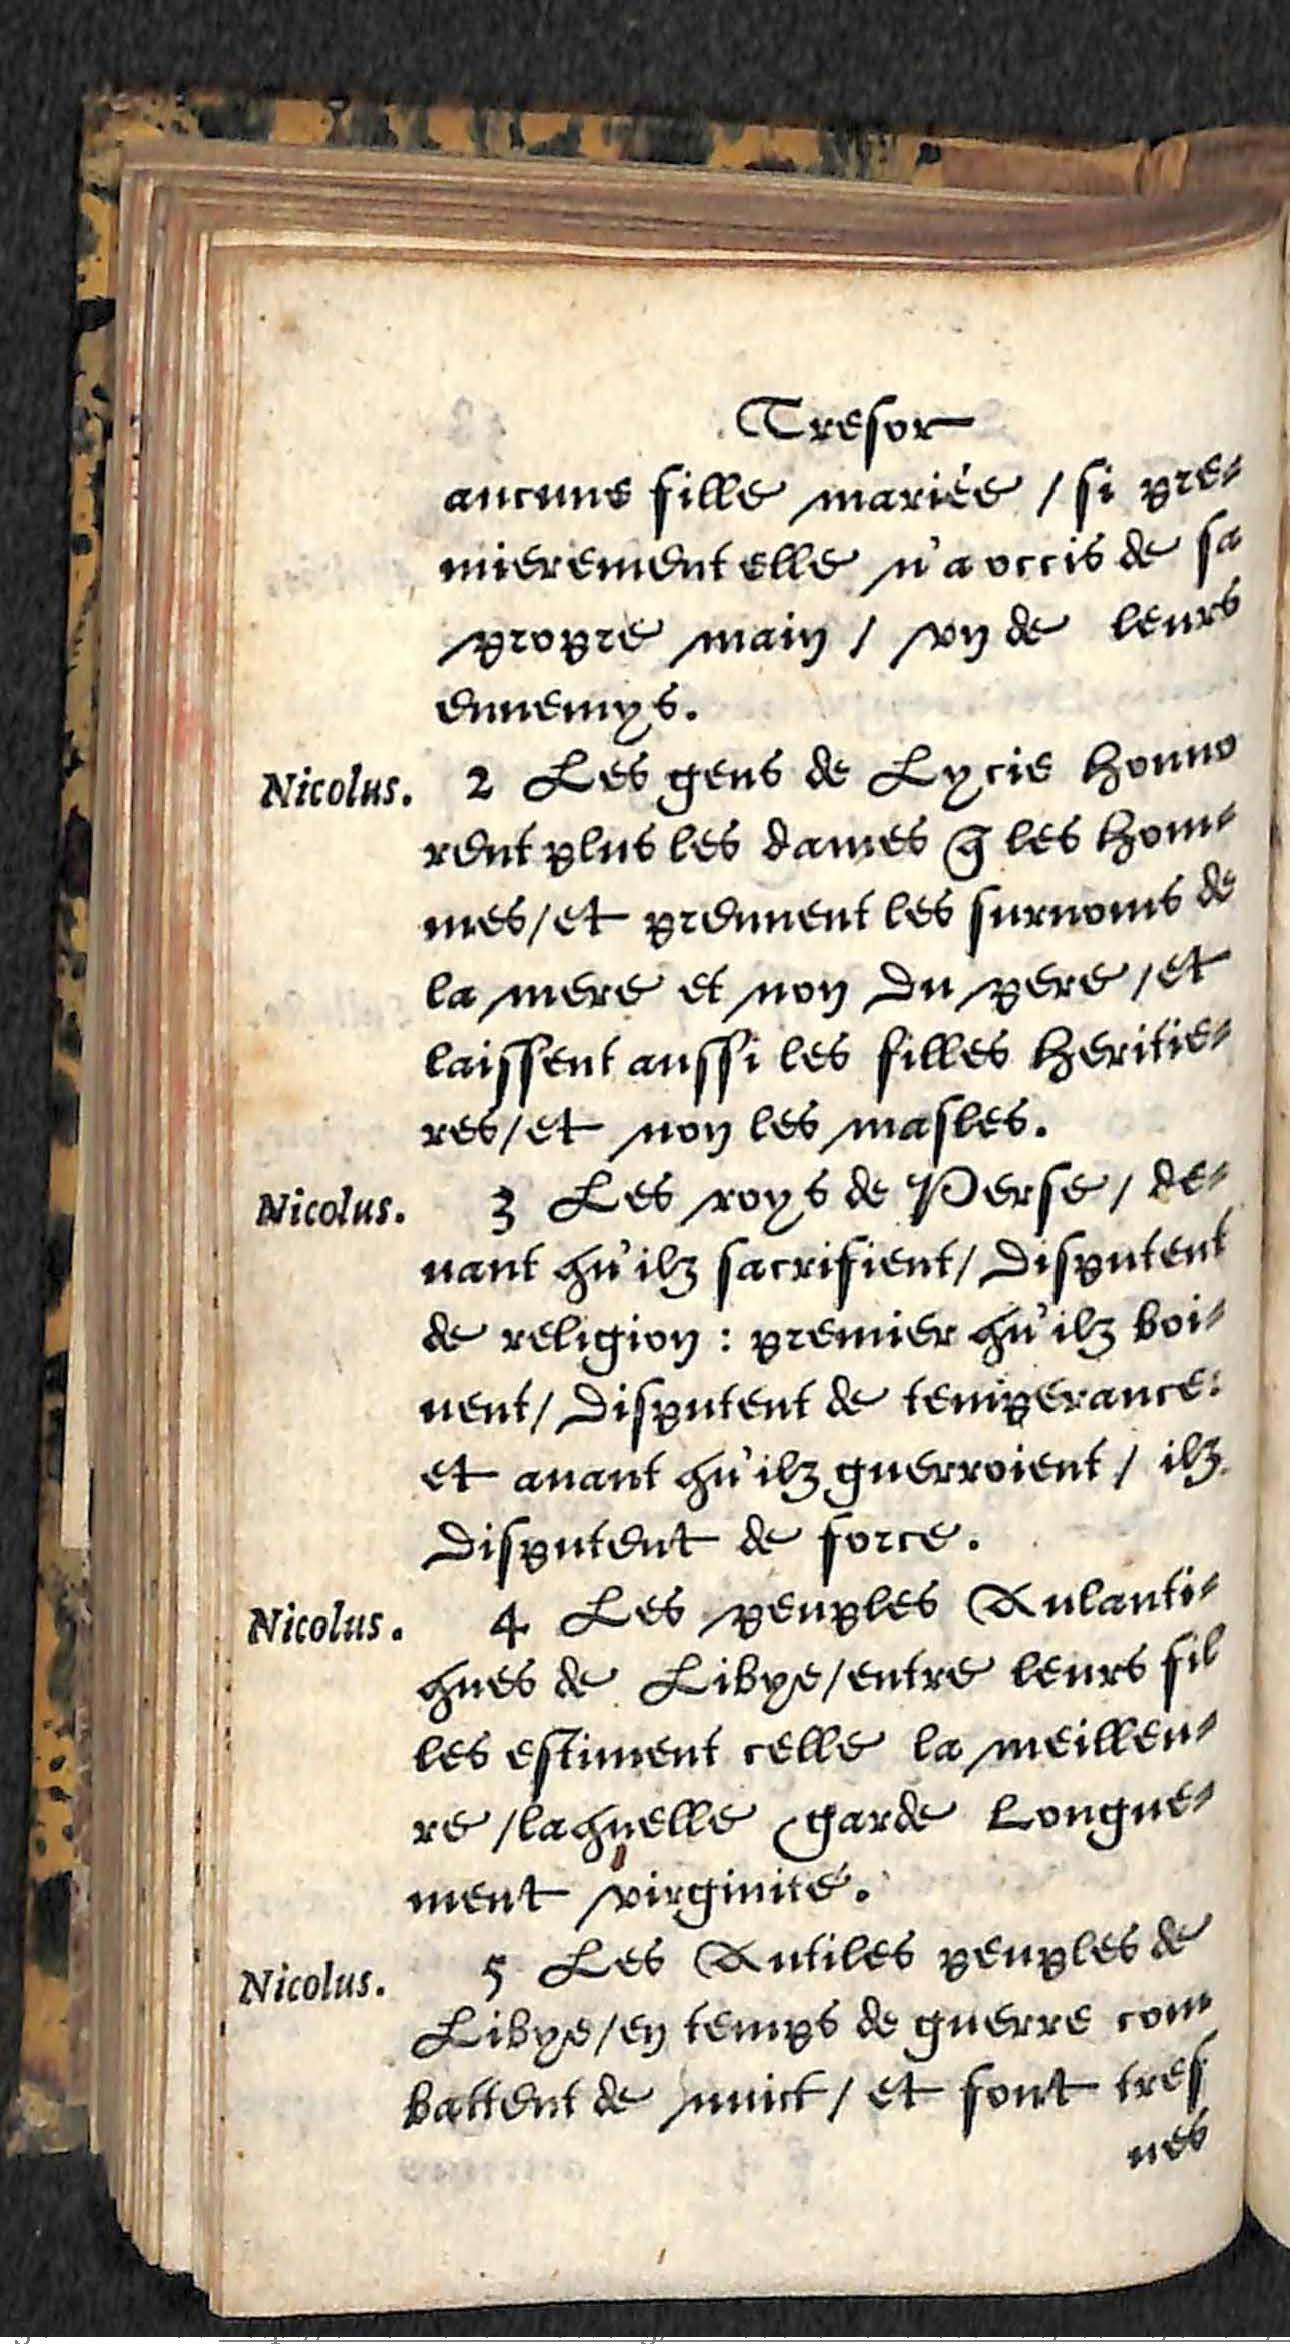 Tresor
aucune fille mariée / si pre-
mierement elle n'a occis de sa
propre main / vn de leurs
ennemys.
Nicolus. 2 Les gens de Lycie honno
rent plus les dames q̃ les hom-
mes / et prennent les surnoms de
la mere et non du pere / et
laissent aussi les filles heritie-
res / et non les masles.
Nicolus. 3 Les roys de Perse / de-
uant qu'ilz sacrifient / disputent
de religion : premier qu'ilz boi-
uent / disputent de temperance:
et auant qu'ilz guerroient / ilz
disputent de force.
Nicolus. 4 Les peuples Aulanti-
ques de Libye / entre leurs fil
les estiment celle la meilleu-
re / laquelle garde longue-
ment virginité.
Nicolus. 5 Les Autiles peuples de
Libye / en temps de guerre com
battent de nuict / et font tres
ues